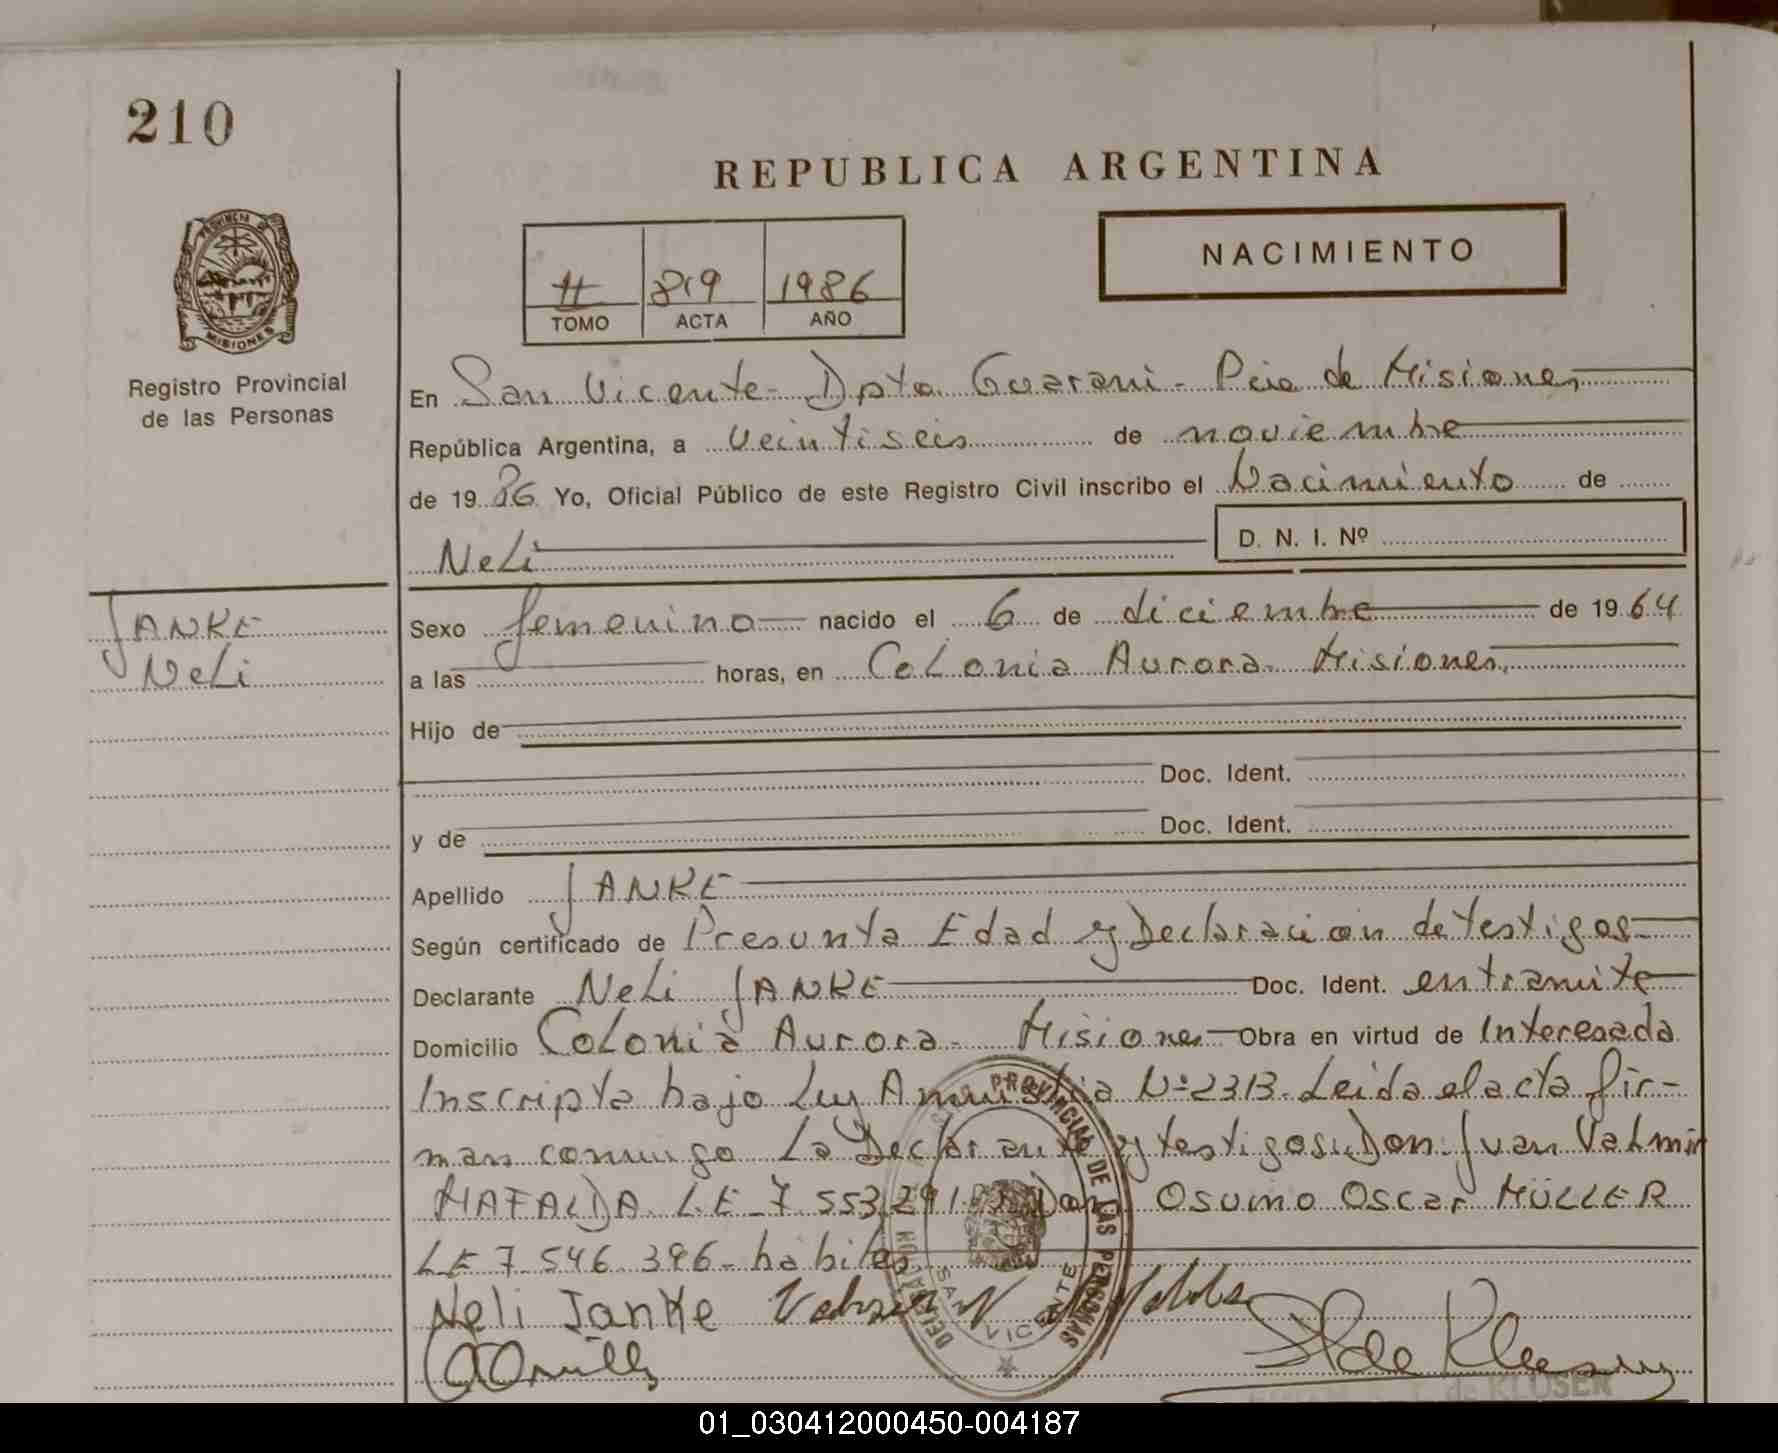 210
REPUBLICA ARGENTINA
PROVINCIA DE
MISIONES
Registro Provincial
de las Personas
NACIMIENTO
II 819 1986
TOMO ACTA AÑO
En San Vicente - Dpto Guarani - Pcia de Misiones
República Argentina, a veintiseis de noviembre
de 1986 Yo, Oficial Público de este Registro Civil inscribo el Nacimiento de
Neli D. N. I. Nº
JANKE
Neli
Sexo femenino nacido el 6 de diciembre de 1964
a las horas, en Colonia Aurora Misiones
Hijo de
Doc. Ident.
y de Doc. Ident.
Apellido JANKE
Según certificado de Presunta Edad y Declaracion de testigos
Declarante Neli JANKE Doc. Ident. en tramite
Domicilio Colonia Aurora - Misiones Obra en virtud de Interesada
Inscripta bajo Ley Amnistia Nº 2313. Leida el acta fir-
man conmigo La Declarante y testigos: Don Juan Valmir
MAFALDA LE 7 553.291 Don OSVINO OSCAR MÜLLER
LE 7 546 396 - habiles
Neli Janke
PROVINCIAL DE LAS PERSONAS
SAN VICENTE
de KLOSER
01_030412000450-004187